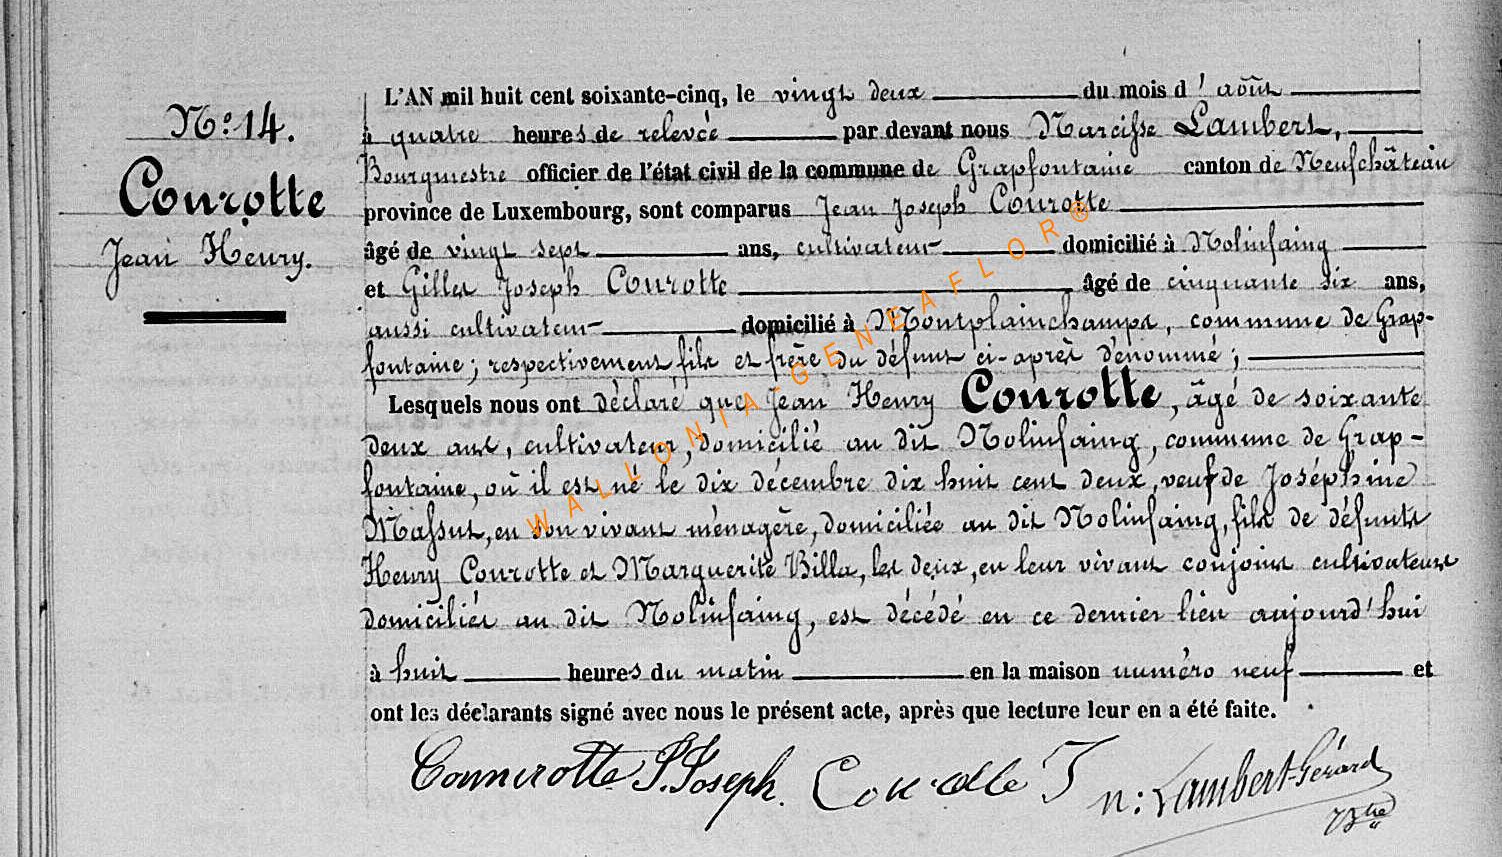 L'AN mil huit cent soixante-cinq, le vingt deux du mois d'août
N.º 14.
à quatre heures de relevée par devant nous Narcisse Lambert,
Bourgmestre officier de l'état civil de la commune de Grapfontaine canton de Neufchâteau
Courotte
province de Luxembourg, sont comparus Jean Joseph Courotte
Jean Henry.
âgé de vingt sept ans, cultivateur domicilié à Nolinfaing
et Gilles Joseph Courotte âgé de cinquante six ans,
aussi cultivateur domicilié à Montplainchamps, commune de Grap-
fontaine; respectivement fils et frère du défunt ci-après dénommé;
Lesquels nous ont déclaré que Jean Henry Courotte, âgé de soixante
deux ans, cultivateur, domicilié au dit Nolinfaing, commune de Grap-
fontaine, où il est né le dix décembre dix huit cent deux, veuf de Joséphine
Massut, en son vivant ménagère, domiciliée au dit Nolinfaing, fils de défunts
Henry Courotte et Marguerite Billa, les deux, en leur vivant conjoints cultivateurs
domiciliés au dit Nolinfaing, est décédé en ce dernier lieu aujourd'hui
à huit heures du matin en la maison numéro neuf et
ont les déclarants signé avec nous le présent acte, après que lecture leur en a été faite.
Courotte J. Joseph. Courotte J n: Lambert-Gérard
WALLONIA-GENEAFLOR®